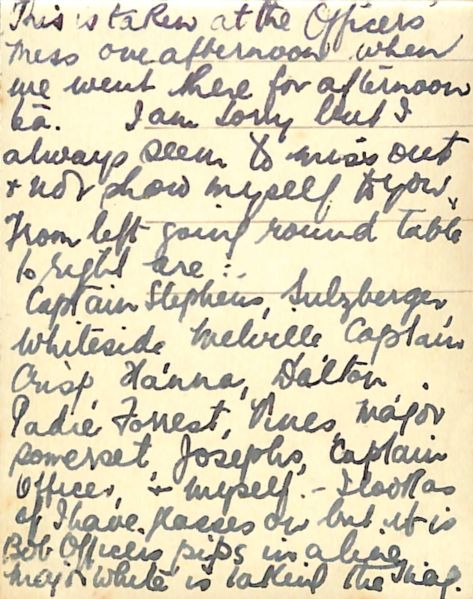 This is taken at the Officers
Mess one afternoon when
we went there for afternoon
tea. I am sorry but I
always seem to miss out
& not show myself to you.
From left going round table
to right are :-
Captain Stephens, Sulzberger,
Whiteside Melville Captain
Crisp Hanna, Dalton
Padre Forrest, Vines, Major
Somerset, Josephs, Captain
Officer, & myself. - I look as
if I have glasses on but it is
Bob Officers pips in a line
Major White is taking the snap.